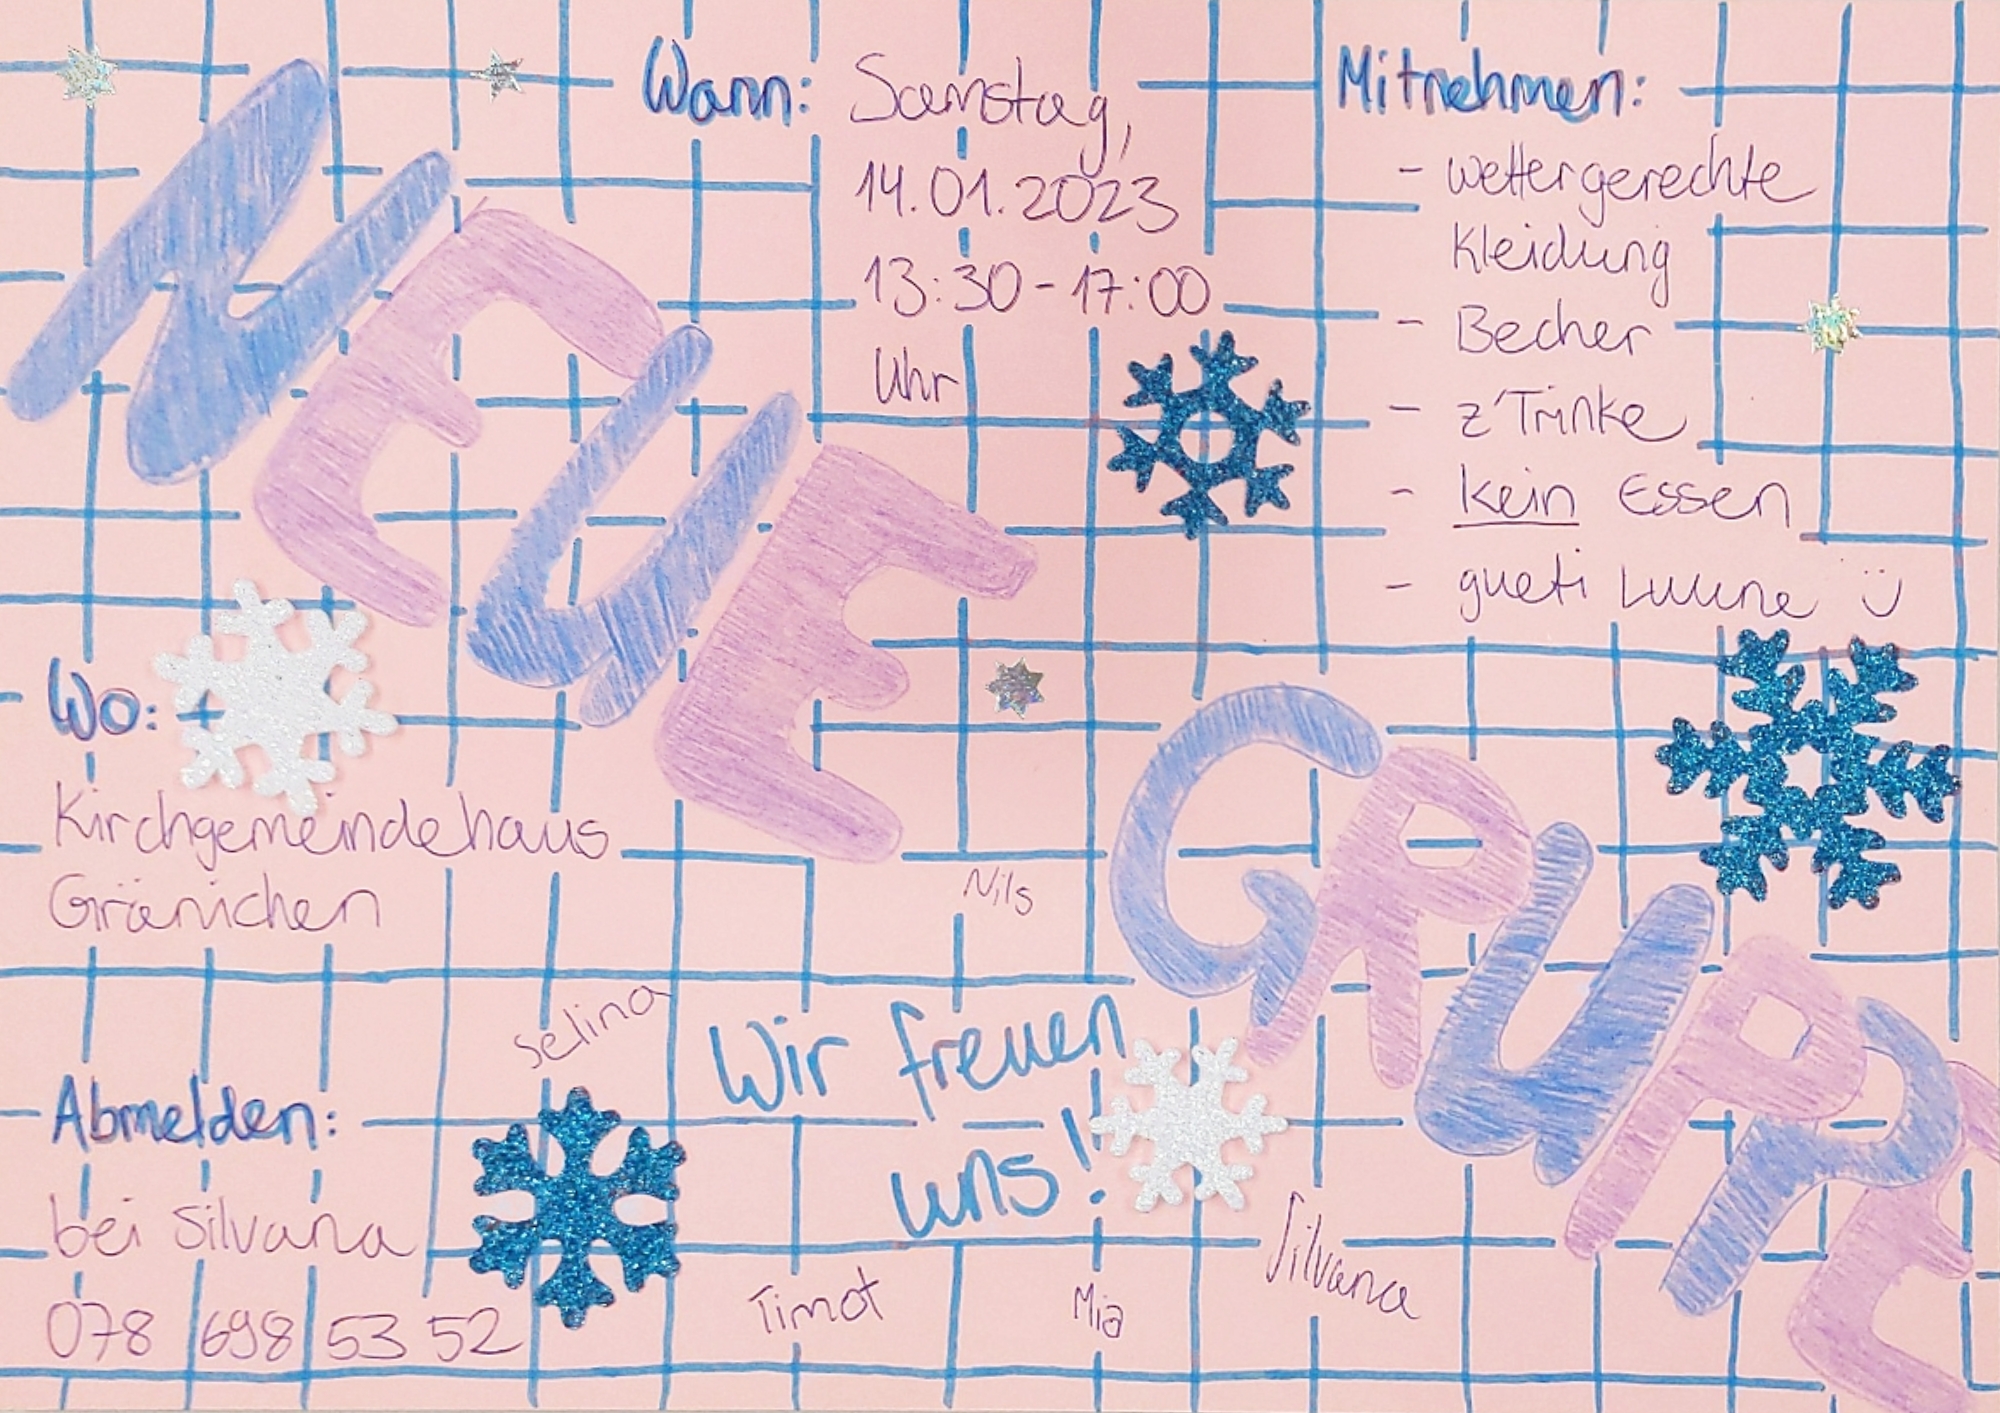 NEUE
GRUPPE
Wann: Samstag,
14.01.2023
13:30-17:00
Uhr
Mitnehmen:
- wettergerechte
Kleidung
- Becher
- z'Trinke
- kein Essen
- gueti Luune :)
Wo:
Kirchgemeindehaus
Gränichen
Abmelden:
bei Silvana
078 698 53 52
Wir freuen
uns!
Nils
Selina
Timot
Mia
Silvana